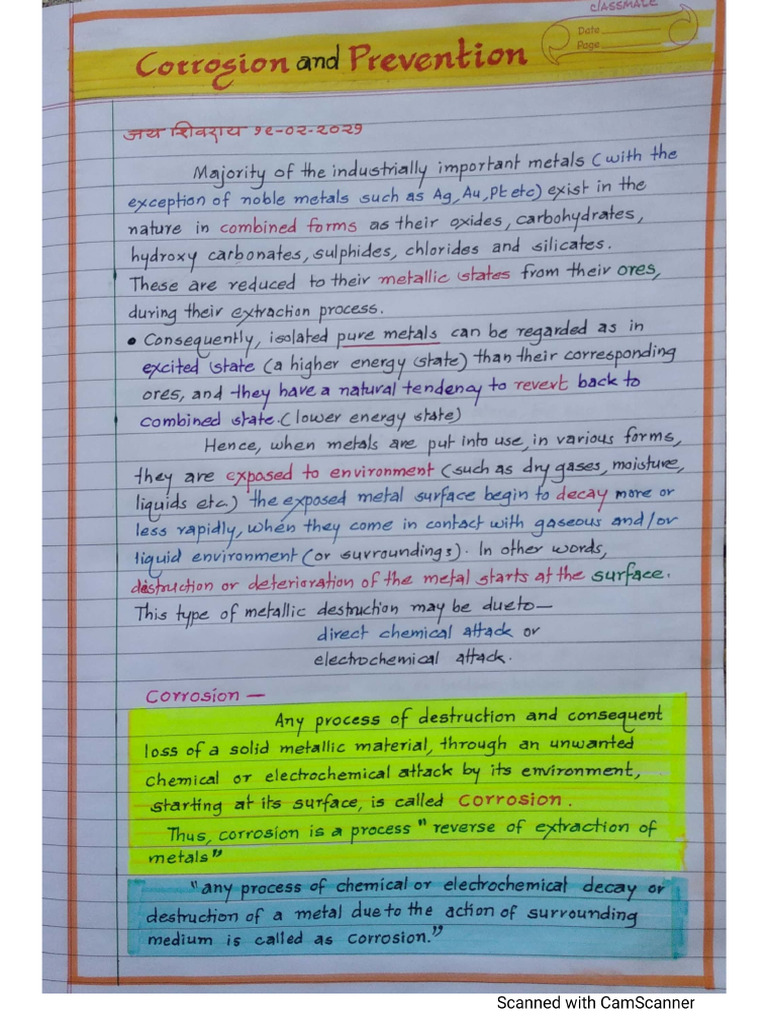 classmate
Date
Page
Corrosion and Prevention
जय शिवराय १९-०२-२०२१
Majority of the industrially important metals (with the
exception of noble metals such as Ag, Au, Pt etc) exist in the
nature in combined forms as their oxides, carbohydrates,
hydroxy carbonates, sulphides, chlorides and silicates.
These are reduced to their metallic states from their ores,
during their extraction process.
• Consequently, isolated pure metals can be regarded as in
excited state (a higher energy state) than their corresponding
ores, and they have a natural tendency to revert back to
combined state. (lower energy state)
Hence, when metals are put into use, in various forms,
they are exposed to environment (such as dry gases, moisture,
liquids etc.) the exposed metal surface begin to decay more or
less rapidly, when they come in contact with gaseous and/or
liquid environment (or surroundings). In other words,
distruction or deterioration of the metal starts at the surface.
This type of metallic destruction may be dueto—
direct chemical attack or
electrochemical attack.
Corrosion —
Any process of destruction and consequent
loss of a solid metallic material, through an unwanted
chemical or electrochemical attack by its environment,
starting at its surface, is called corrosion.
Thus, corrosion is a process "reverse of extraction of
metals"
"any process of chemical or electrochemical decay or
destruction of a metal due to the action of surrounding
medium is called as corrosion."
Scanned with CamScanner